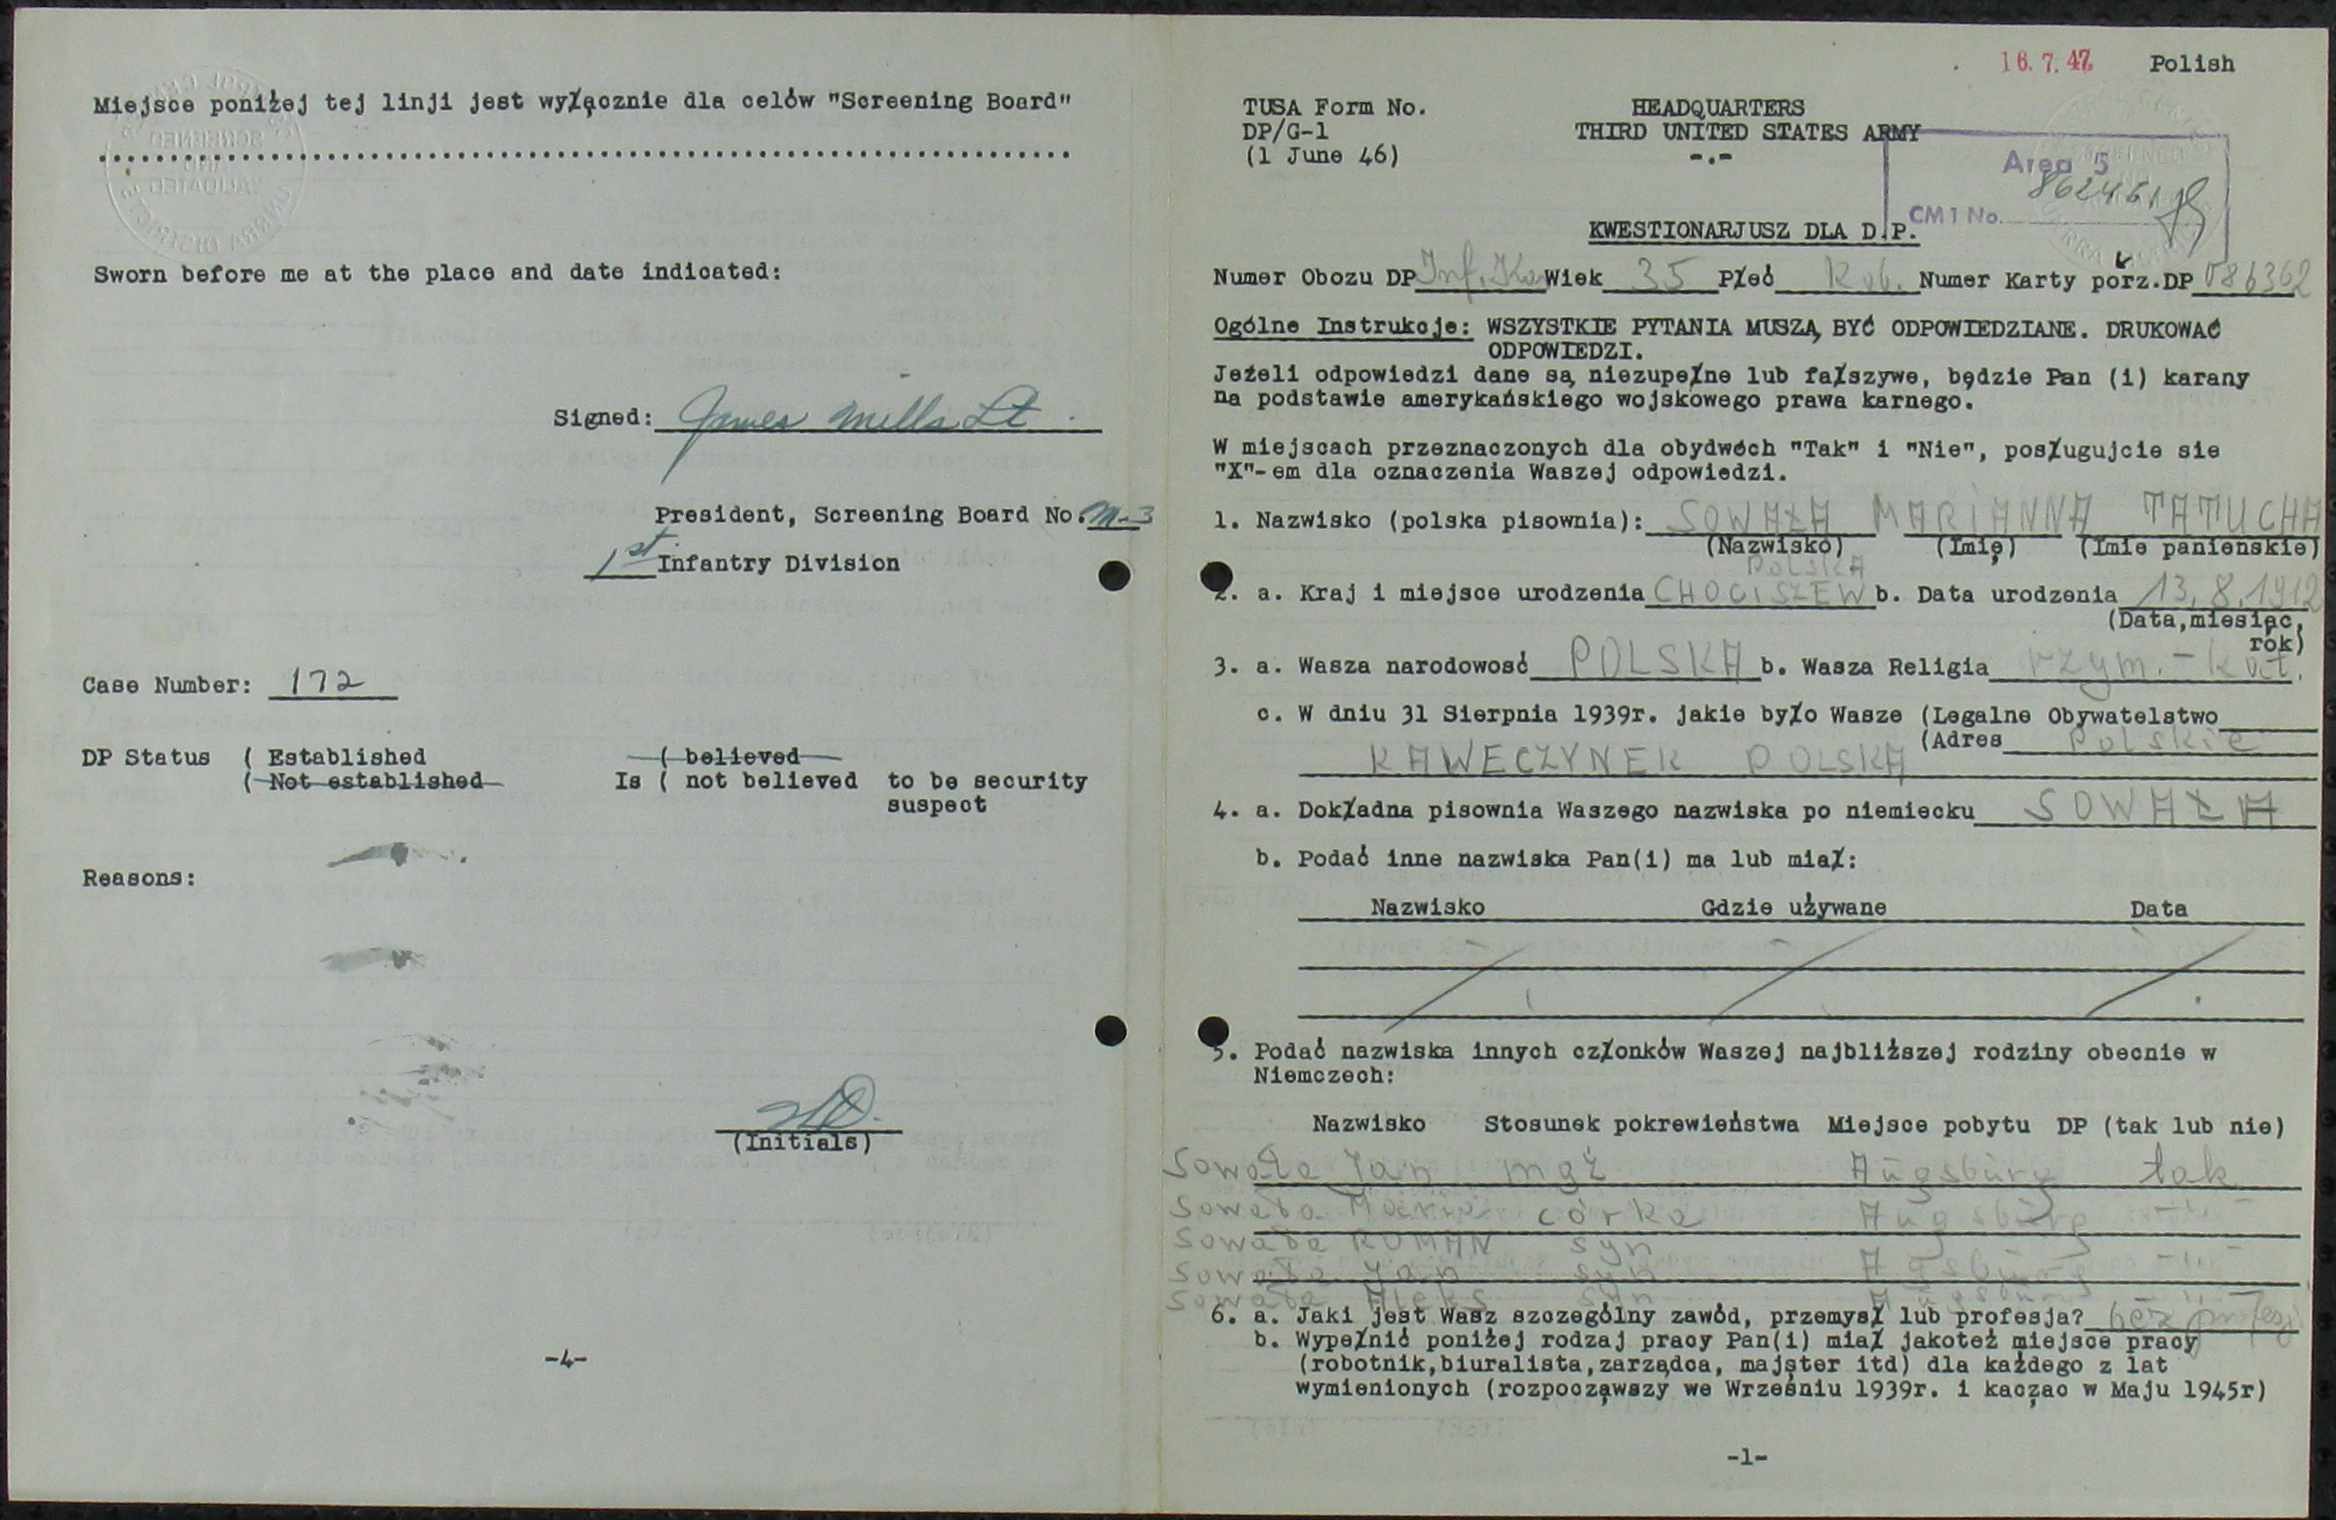 Miejsce poniżej tej linji jest wyłącznie dla celów "Screening Board"
Sworn before me at the place and date indicated:
Signed: James Mills Lt.
President, Screening Board No. M-3
1st Infantry Division
Case Number: 172
DP Status ( Established ( believed
( Not established Is ( not believed to be security
suspect
Reasons:
(Initials)
-4-
16. 7. 47 Polish
TUSA Form No. HEADQUARTERS
DP/G-1 THIRD UNITED STATES ARMY
(1 June 46) -.-
Area 5
862461
CM1 No.
KWESTIONARJUSZ DLA D.P.
Numer Obozu DP Inf. Ka Wiek 35 Płeć Kob. Numer Karty porz.DP 086362
Ogólne Instrukcje: WSZYSTKIE PYTANIA MUSZĄ BYĆ ODPOWIEDZIANE. DRUKOWAĆ
ODPOWIEDZI.
Jeżeli odpowiedzi dane są niezupełne lub fałszywe, będzie Pan (i) karany
na podstawie amerykańskiego wojskowego prawa karnego.
W miejscach przeznaczonych dla obydwóch "Tak" i "Nie", posługujcie sie
"X"-em dla oznaczenia Waszej odpowiedzi.
1. Nazwisko (polska pisownia): SOWAŁA MARIANNA TATUCHA
(Nazwisko) (Imię) (Imie panienskie)
POLSKA
2. a. Kraj i miejsce urodzenia CHOCISZEW b. Data urodzenia 13.8.1912
(Data,miesiąc,
rok)
3. a. Wasza narodowość POLSKA b. Wasza Religia rzym.-kat.
c. W dniu 31 Sierpnia 1939r. jakie było Wasze (Legalne Obywatelstwo
(Adres Polskie
KAWECZYNEK POLSKA
4. a. Dokładna pisownia Waszego nazwiska po niemiecku SOWAŁA
b. Podać inne nazwiska Pan(i) ma lub miał:
Nazwisko Gdzie używane Data
5. Podać nazwiska innych członków Waszej najbliższej rodziny obecnie w
Niemczech:
Nazwisko Stosunek pokrewieństwa Miejsce pobytu DP (tak lub nie)
Sowała Jan mąż Augsburg tak
Sowała Maria córka Augsburg -"-
Sowała ROMAN syn
Sowała Jan syn Agsburg -"-
Sowała Aleks syn Augsburg -"-
6. a. Jaki jest Wasz szczególny zawód, przemysł lub profesja? bez profesj
b. Wypełnić poniżej rodzaj pracy Pan(i) miał jakoteż miejsce pracy
(robotnik,biuralista,zarządca, majster itd) dla każdego z lat
wymienionych (rozpocząwszy we Wrześniu 1939r. i kacząc w Maju 1945r)
-1-